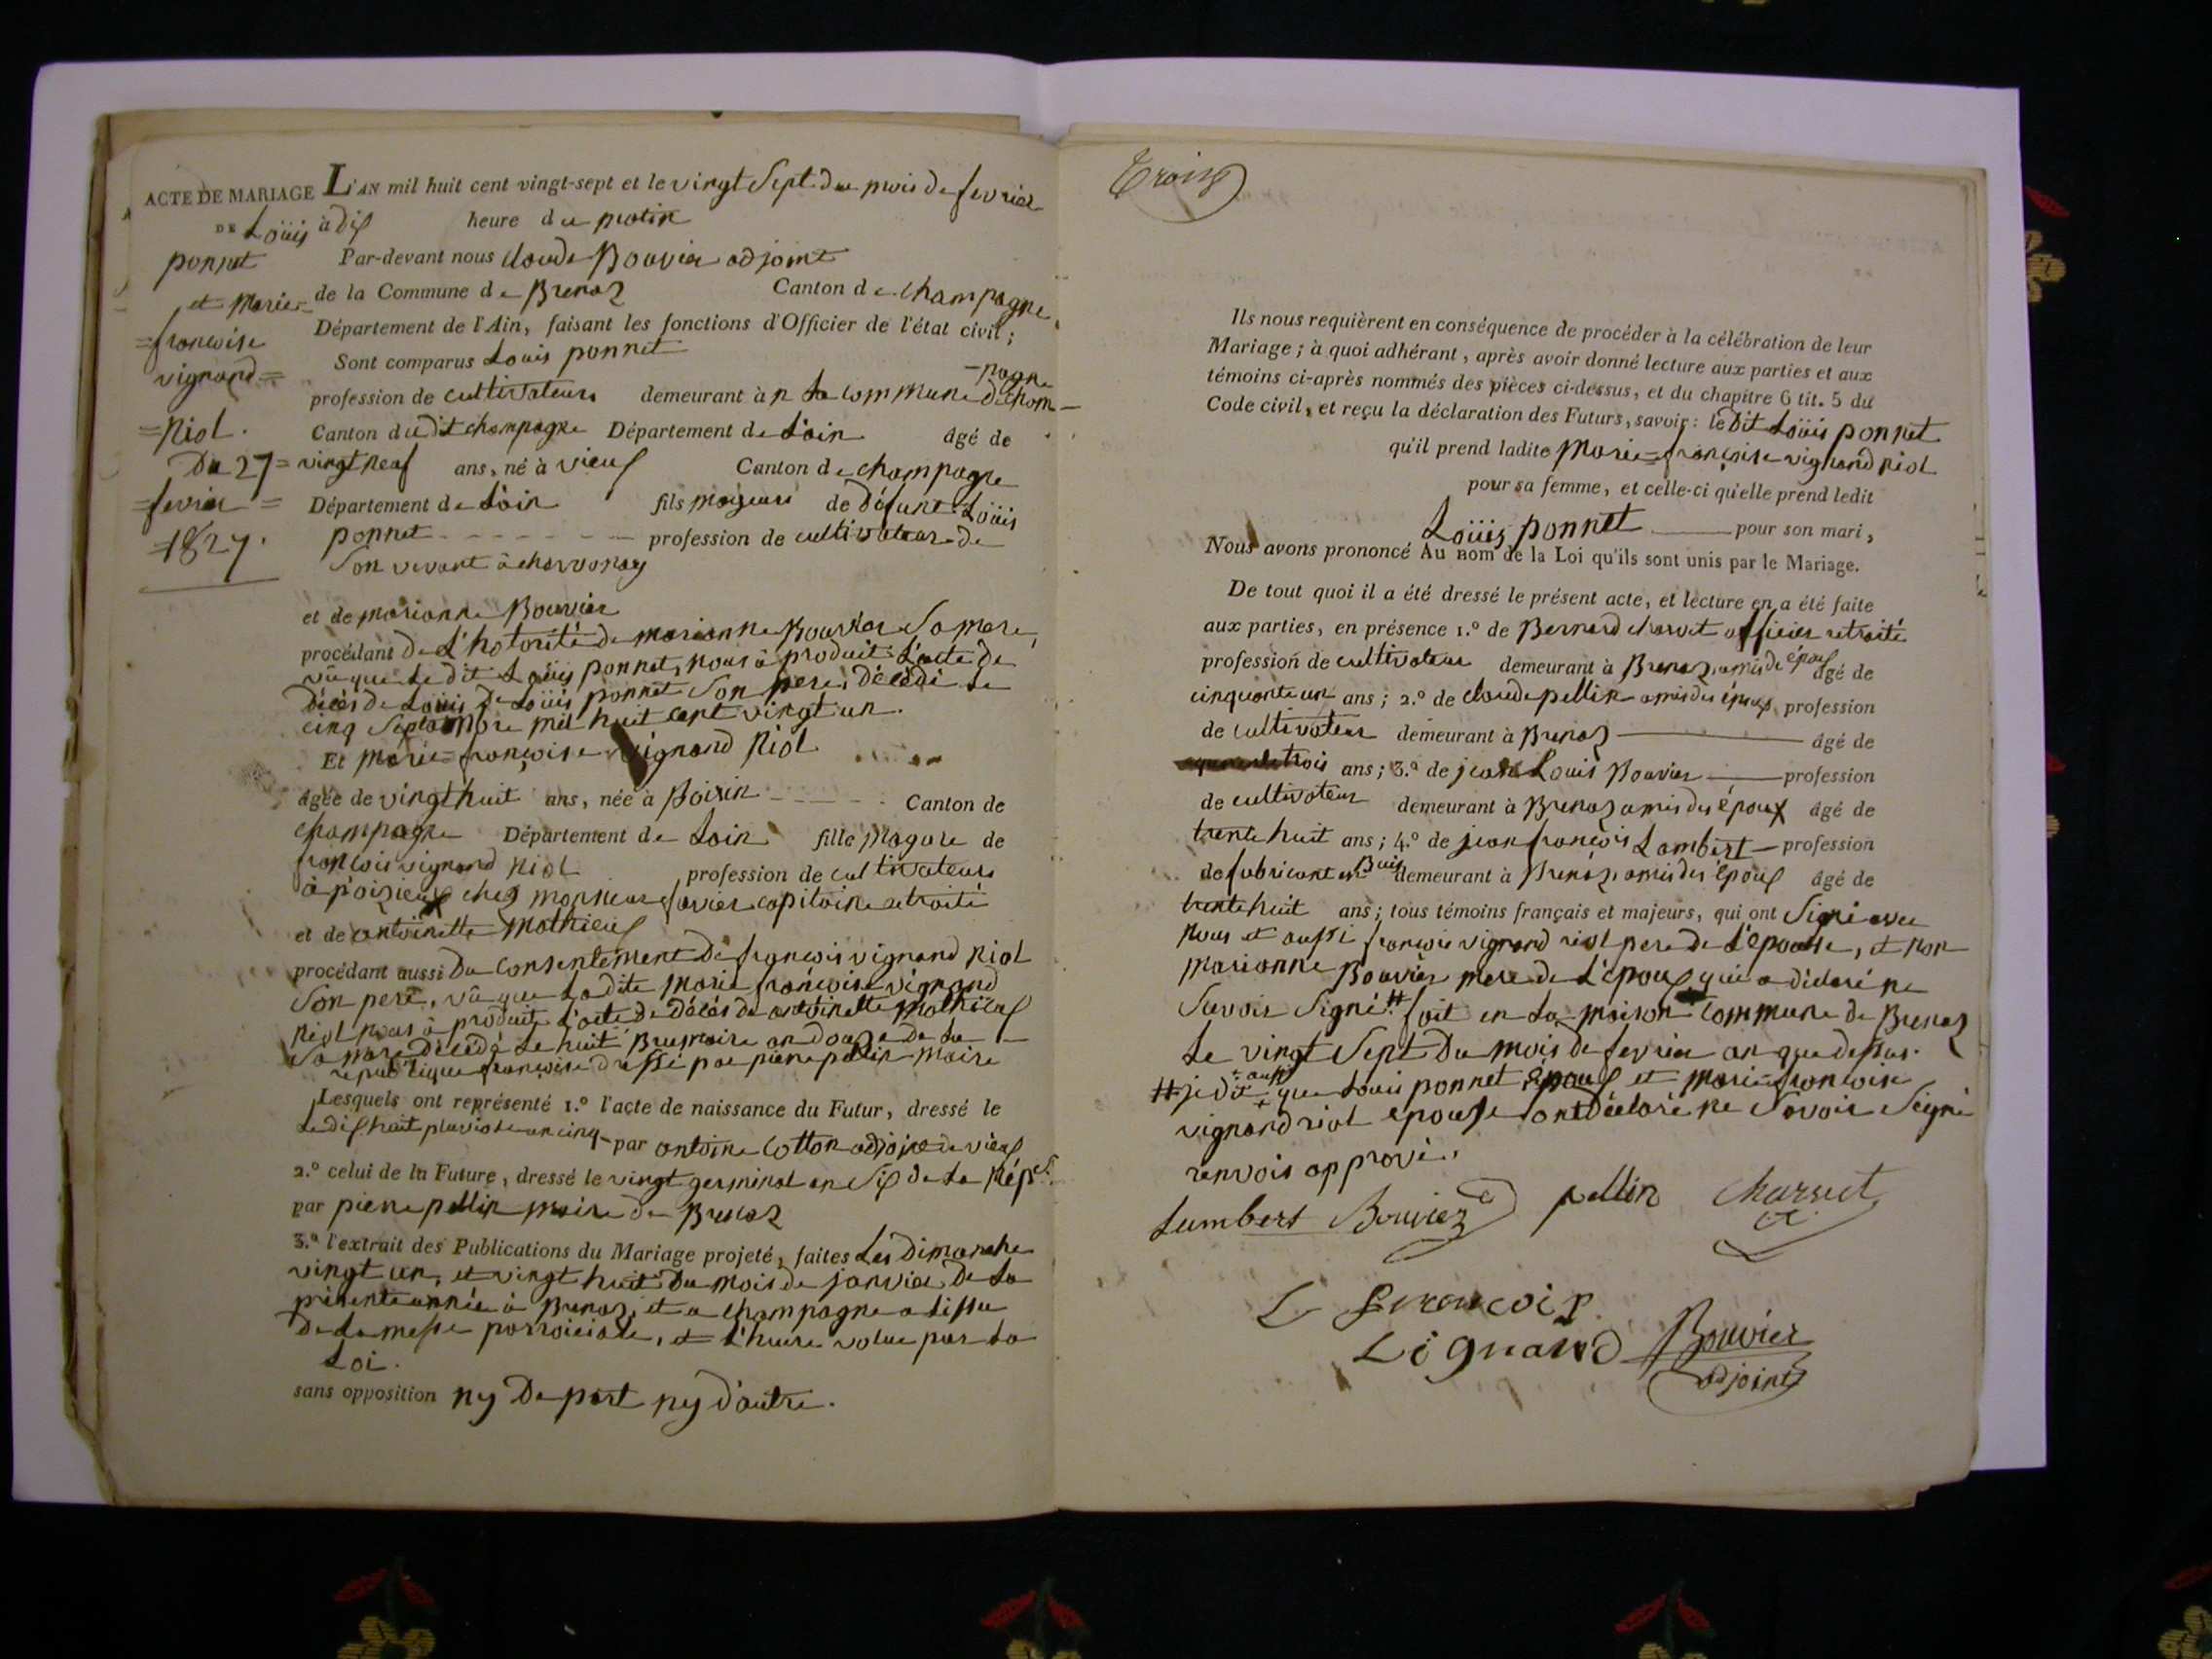 ACTE DE MARIAGE
DE Loüis
ponnet
et Marie=
=francoise
vignand=
=Riol.
Du 27=
=fevrier=
=1827.
L'AN mil huit cent vingt-sept et le vingt Sept du mois de fevrier
à dix heure du matin
Par-devant nous claude Bouvier adjoint
de la Commune de Brenaz Canton de champagne
Département de l'Ain, faisant les fonctions d'Officier de l'état civil;
Sont comparus Louis ponnet
profession de cultivateur demeurant à n la commune de cham-
-pagne
Canton dudit champagne Département de L'ain âgé de
vingt neuf ans, né à vieux Canton de champagne
Département de L'ain fils majeur de défunt Loüis
ponnet profession de cultivateur de
Son vivant à charvonay
et de marianne Bouvier
procédant de L'hotorité de marianne Bouvier Sa mere,
vû que Le dit Loüis ponnet, nous à produit L'acte de
décès de Louis de Loüis ponnet Son pere, décédé Le
cinq Septambre mil huit cent vingt un.
Et Marie=françoise vignand Riol
âgée de vingt huit ans, née à Poizin Canton de
champagne Département de Lain fille Magure de
francois vignand Riol profession de cultivateur
à poizieux chez monsieur favier capitaine retraité
et de antoinette Mathieux
procédant aussi Du consentement De françois vignand Riol
Son pere, vû que Ladite Marie françoise vignand
Riol nous à produit L'acte de Décès de antoinette Mathieux
Sa mere Décédé Le huit Brumaire an douze de La
republique françoise dressé par pierre pellin maire
Lesquels ont représenté 1.º l'acte de naissance du Futur, dressé le
Le dix huit pluviose an cinq par antoine Cotton adjoint de vieux
2.º celui de la Future, dressé le vingt germinal an Six de La Rép.
par pierre pellin maire de Brenaz
3.º l'extrait des Publications du Mariage projeté, faites Les Dimanche
vingt un, et vingt huit Du mois de janvier De La
présente année à Brenaz, et a champagne a lissue
De La messe parroiciale, et L'heure volue par La
Loi.
sans opposition ny De part ny d'autre.
Trois
Ils nous requièrent en conséquence de procéder à la célébration de leur
Mariage; à quoi adhérant, après avoir donné lecture aux parties et aux
témoins ci-après nommés des pièces ci-dessus, et du chapitre 6 tit. 5 du
Code civil, et reçu la déclaration des Futurs, savoir: le Dit Loüis ponnet
qu'il prend ladite Marie=françoise vignand Riol
pour sa femme, et celle-ci qu'elle prend ledit
Loüis ponnet pour son mari,
Nous avons prononcé Au nom de la Loi qu'ils sont unis par le Mariage.
De tout quoi il a été dressé le présent acte, et lecture en a été faite
aux parties, en présence 1.º de Bernard charvet officier retraité
profession de cultivateur demeurant à Brenaz, amis de époux âgé de
cinquante un ans; 2.º de claude pellin amis des époux profession
de cultivateur demeurant à Brenaz âgé de
trois ans; 3.º de jean Louis Bouvier profession
de cultivateur demeurant à Brenaz amis des époux âgé de
trente huit ans; 4.º de jean françois Lambert profession
de fabricant en Buis demeurant à Brenaz, amis des époux âgé de
trente huit ans; tous témoins français et majeurs, qui ont Signé avec
nous et aussi francois vignand riol pere de L'épouse, et non
Marianne Bouvier mere de L'époux qui a déclaré ne
Savoir Signé # fait en La maison commune de Brenaz
Le vingt Sept Du mois de fevrier an que dessus.
# je dit + aussi + que Louis ponnet époux et Marie=françoise
vignand riol epouse ont déclaré ne Savoir Seigné
renvois apprové.
Lambert Bouvier pellin Charvet
francois
vignand Bouvier
adjoint